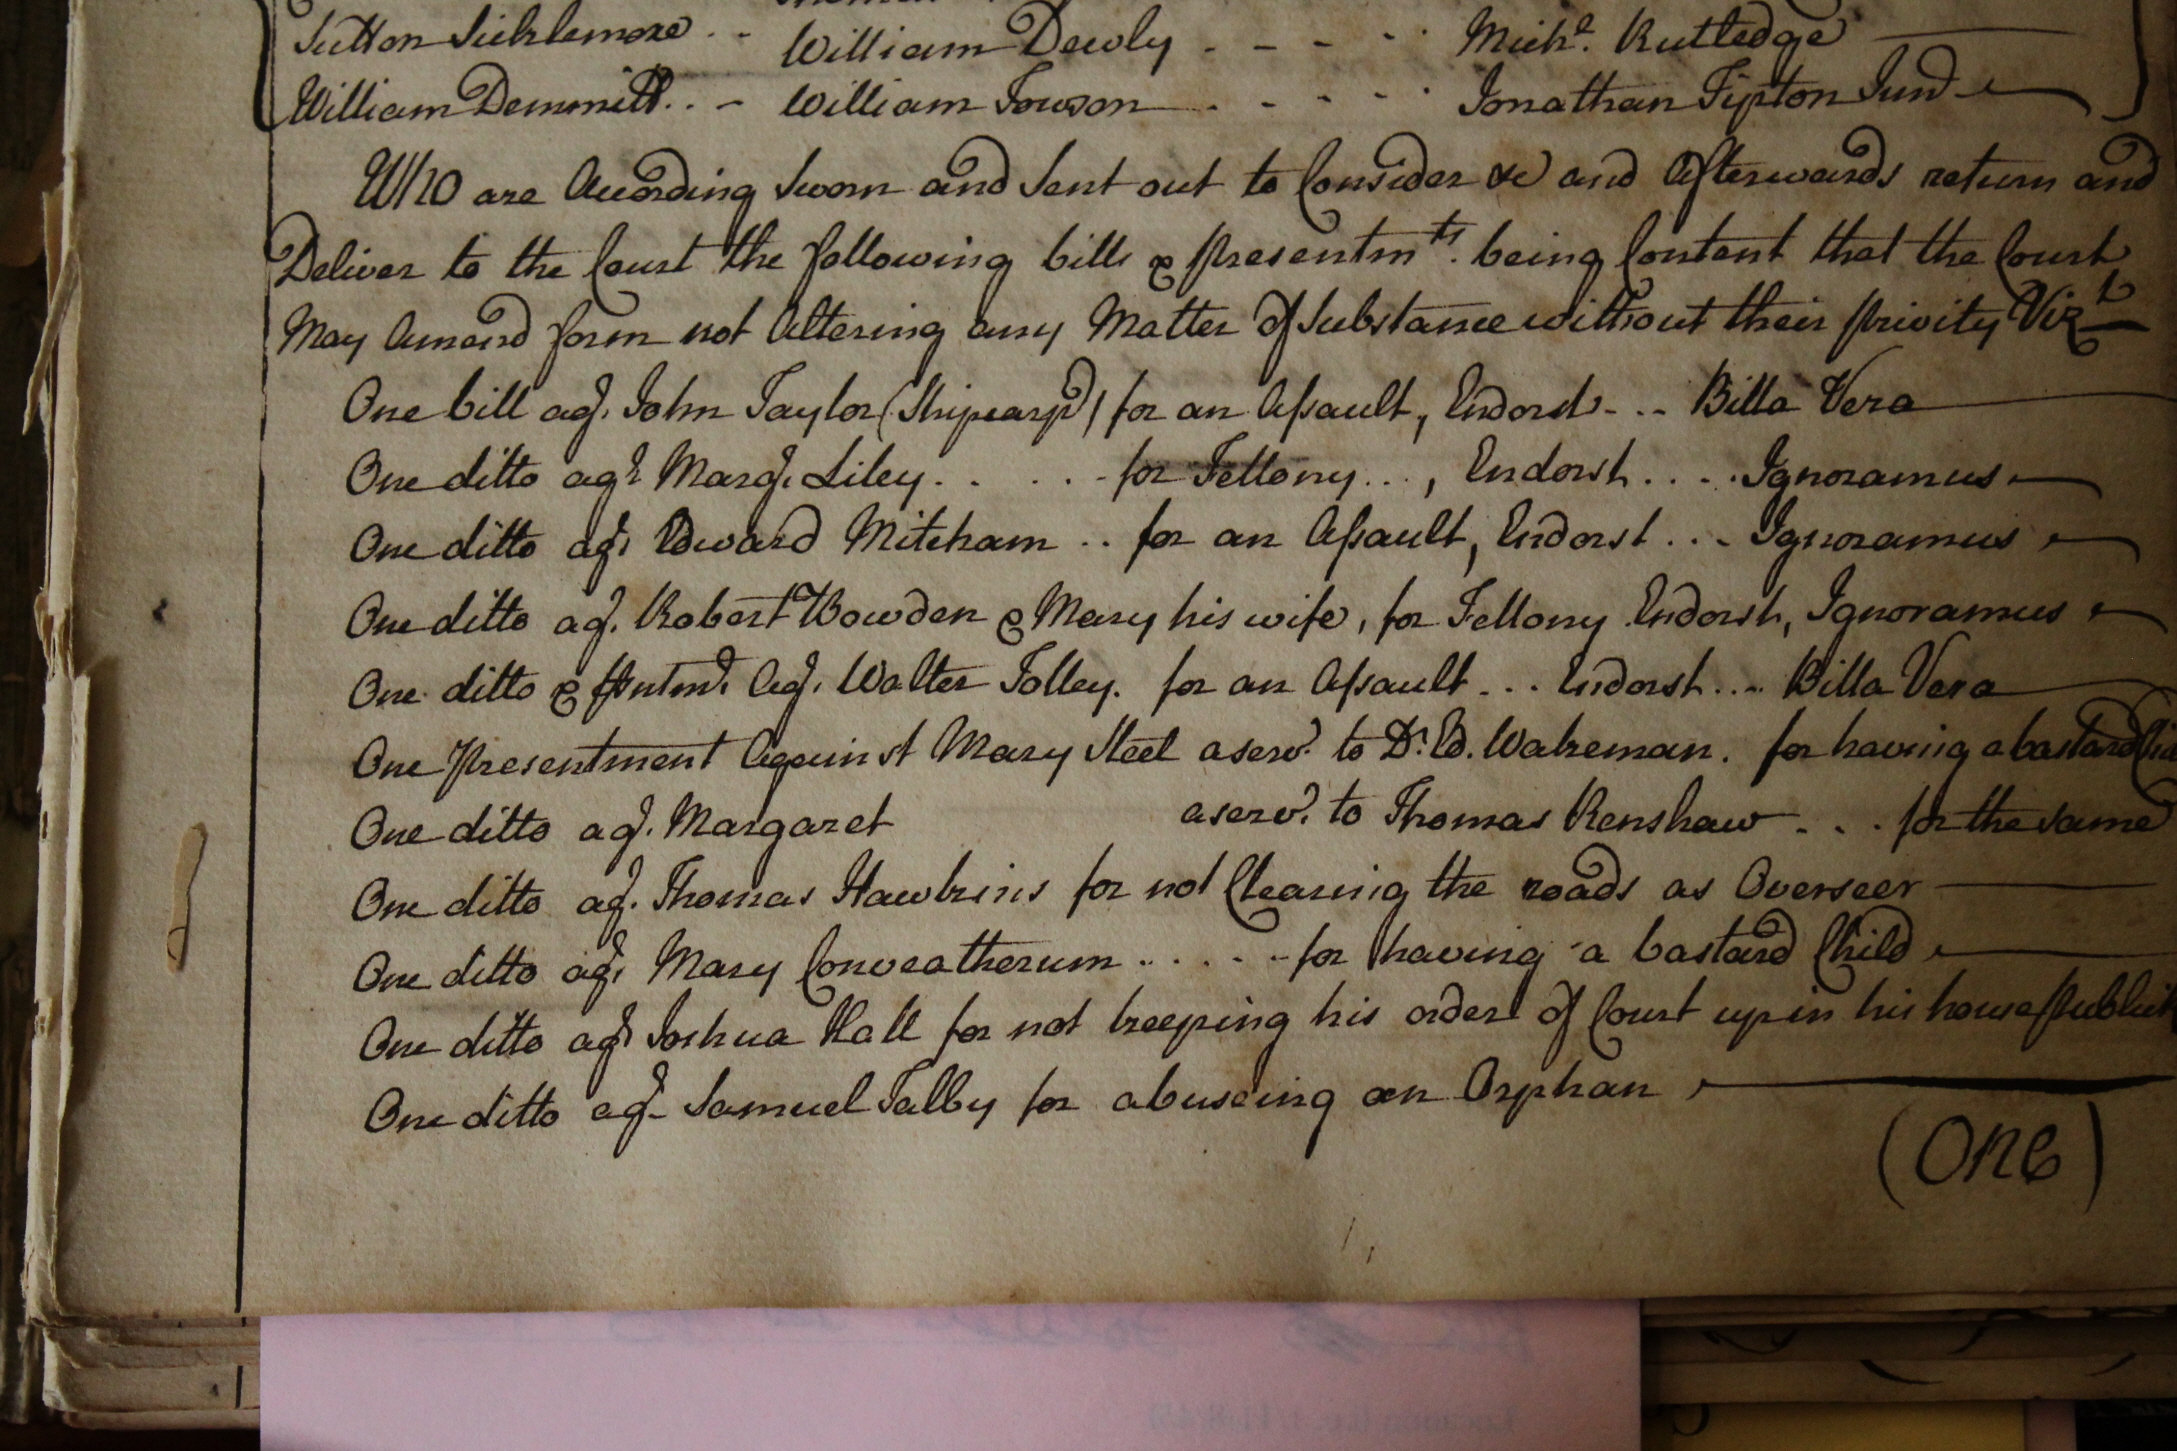 Sutton Sicklemore . . William Dewly . - - - . Mich.l Rutledge
William Demmitt . . - William Towson - . - - - . Jonathan Tipton Jun.r
Who are Acording Sworn and Sent out to Consider &c and Afterwards return and
Deliver to the Court the following bills & Presentm.ts being Content that the Court
May Amend form not Altering any Matter of Substance without their Privity Viz.t
One bill ag.t John Taylor (Shipcarp.r) for an Assault, Endorst - . . Billa Vera
One ditto ag.t Marg.t Liley . . . . . for Fellony . . . , Endorst . . . . Ignoramus
One ditto ag.t Edward Mitcham . . for an Assault, Endorst . . . Ignoramus
One ditto ag.t Robert Bowden & Mary his wife, for Fellony Endorst, Ignoramus
One ditto & Prntm.t Ag.t Walter Tolley. for an Assault . . . Endorst . . . . Billa Vera
One Presentment Against Mary Steel a serv.t to D.r Ed. Wakeman. for having a bastard
One ditto ag.t Margaret a serv.t to Thomas Renshaw . . . for the same
One ditto ag.t Thomas Hawkins for not Clearing the roads as Overseer
One ditto ag.t Mary Conveatherum . . . . . for having a bastard Child
One ditto ag.t Joshua Hall for not keeping his order of Court up in his house
One ditto ag.t Samuel Talby for abuseing an Orphan
(One)